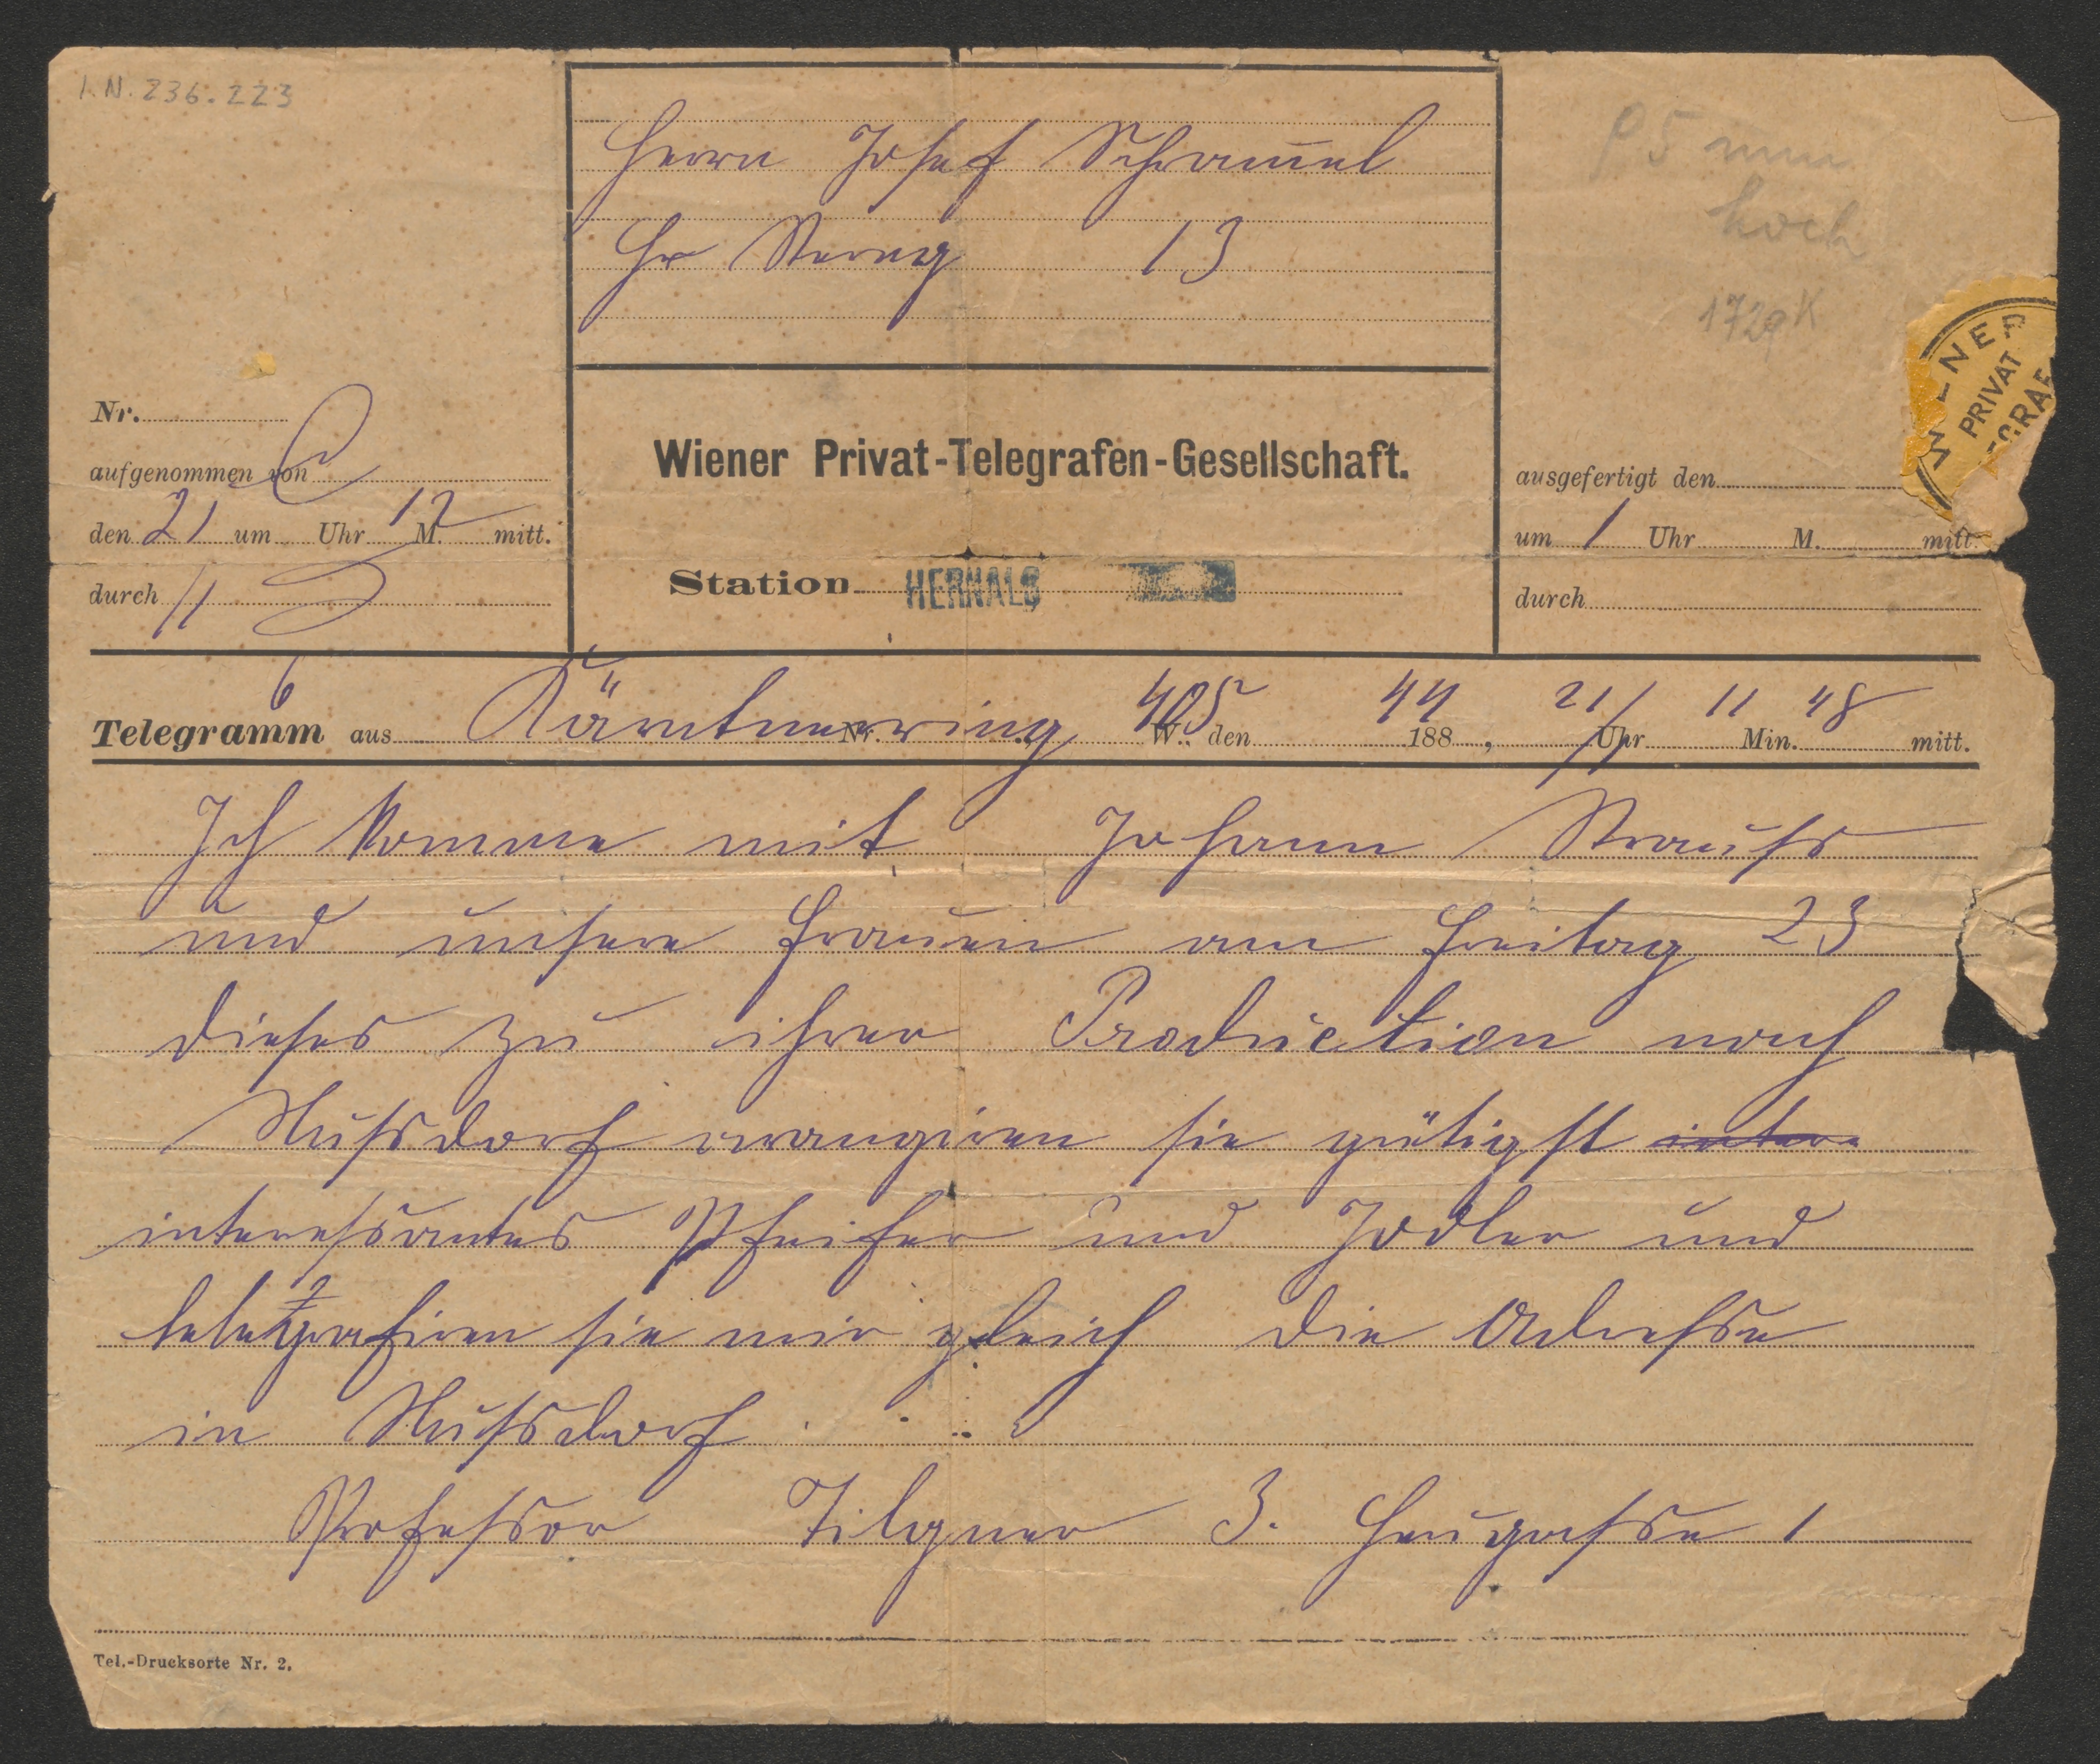 I.N. 236.223
Herrn Josef Schram̅el
13
95 mm
hoch
1729 K
WIENER
PRIVAT
Nr.
aufgenommen von
den 21 um Uhr 12 M. mitt.
durch
Wiener Privat-Telegrafen-Gesellschaft.
Station HERNALS
ausgefertigt den
um 1 Uhr M. mitt.
durch
6
Telegramm aus Kärntnerring Nr. 405 W., den 44 188 , 21/ Uhr 11 Min. 48 mitt.
Ich komme mit Johann Strauss
und unsere Frauen am Freitag 23
dieses zu ihrer Production nach
Nussdorf arrangiren sie gütigst inter
interessantes Pfeifer und Jodler und
telegrafiren sie mir gleich die Adresse
in Nussdorf
Professor Tilgner 3. Heugasse 1
Tel.-Drucksorte Nr. 2.